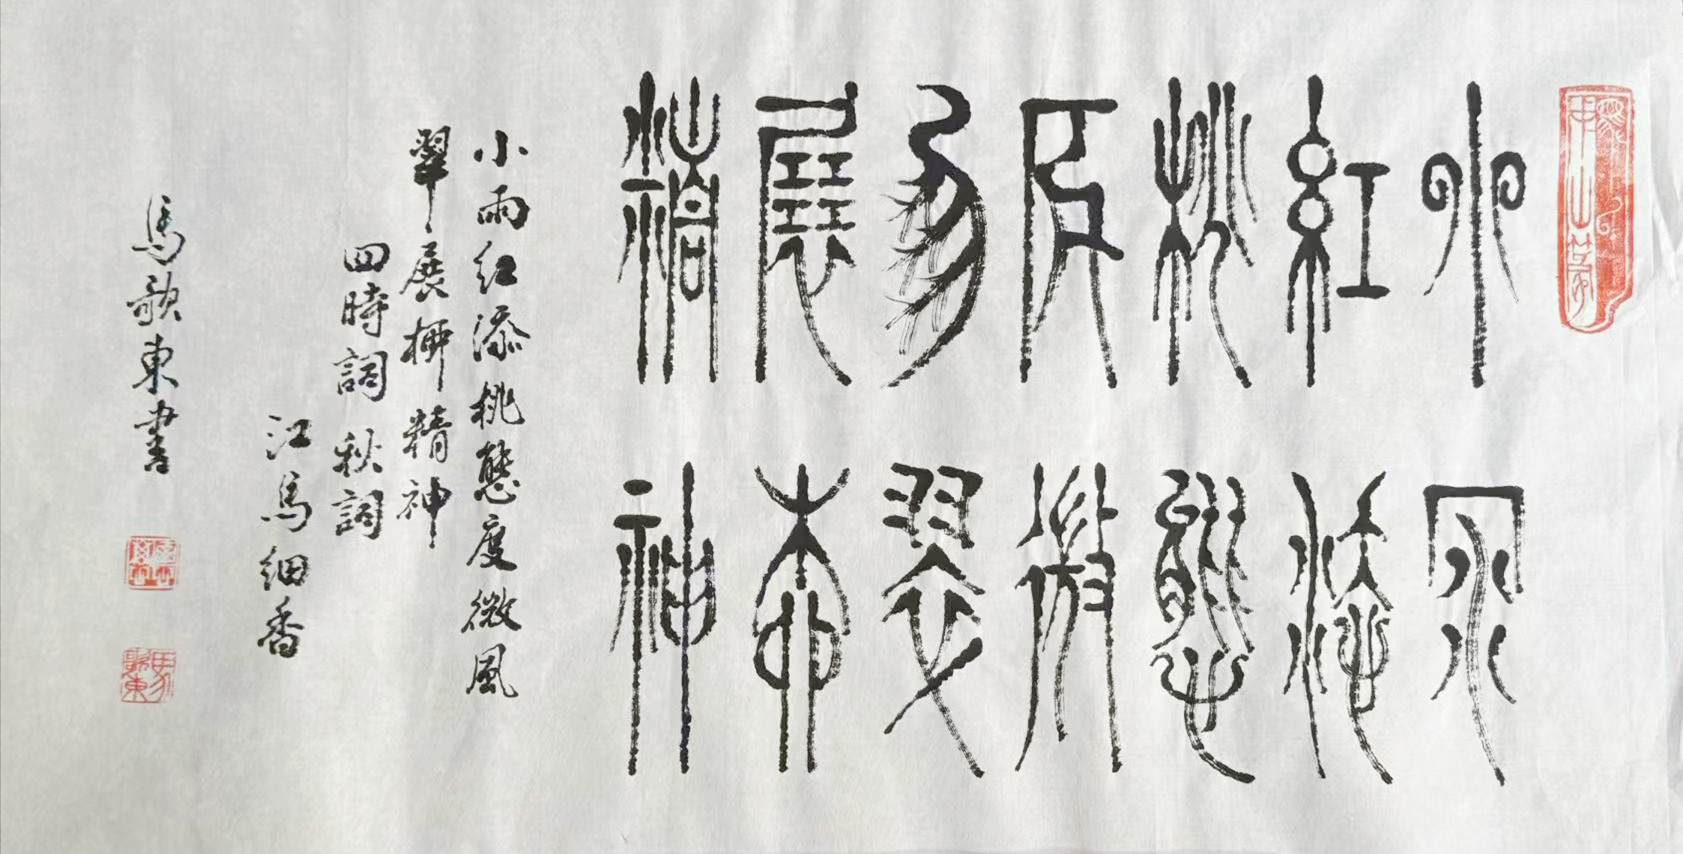 小雨
紅添
桃態
度微
風翠
展柳
精神
小雨紅添桃態度微風
翠展柳精神
四時詞 秋詞
江馬細香
馬歌東書